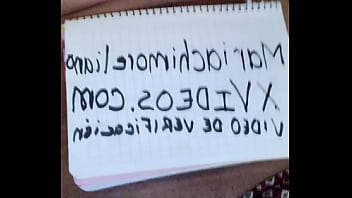 Mariachimoreliano
XVIDEOS.COM
VIDEO DE VERIFICACIÓN